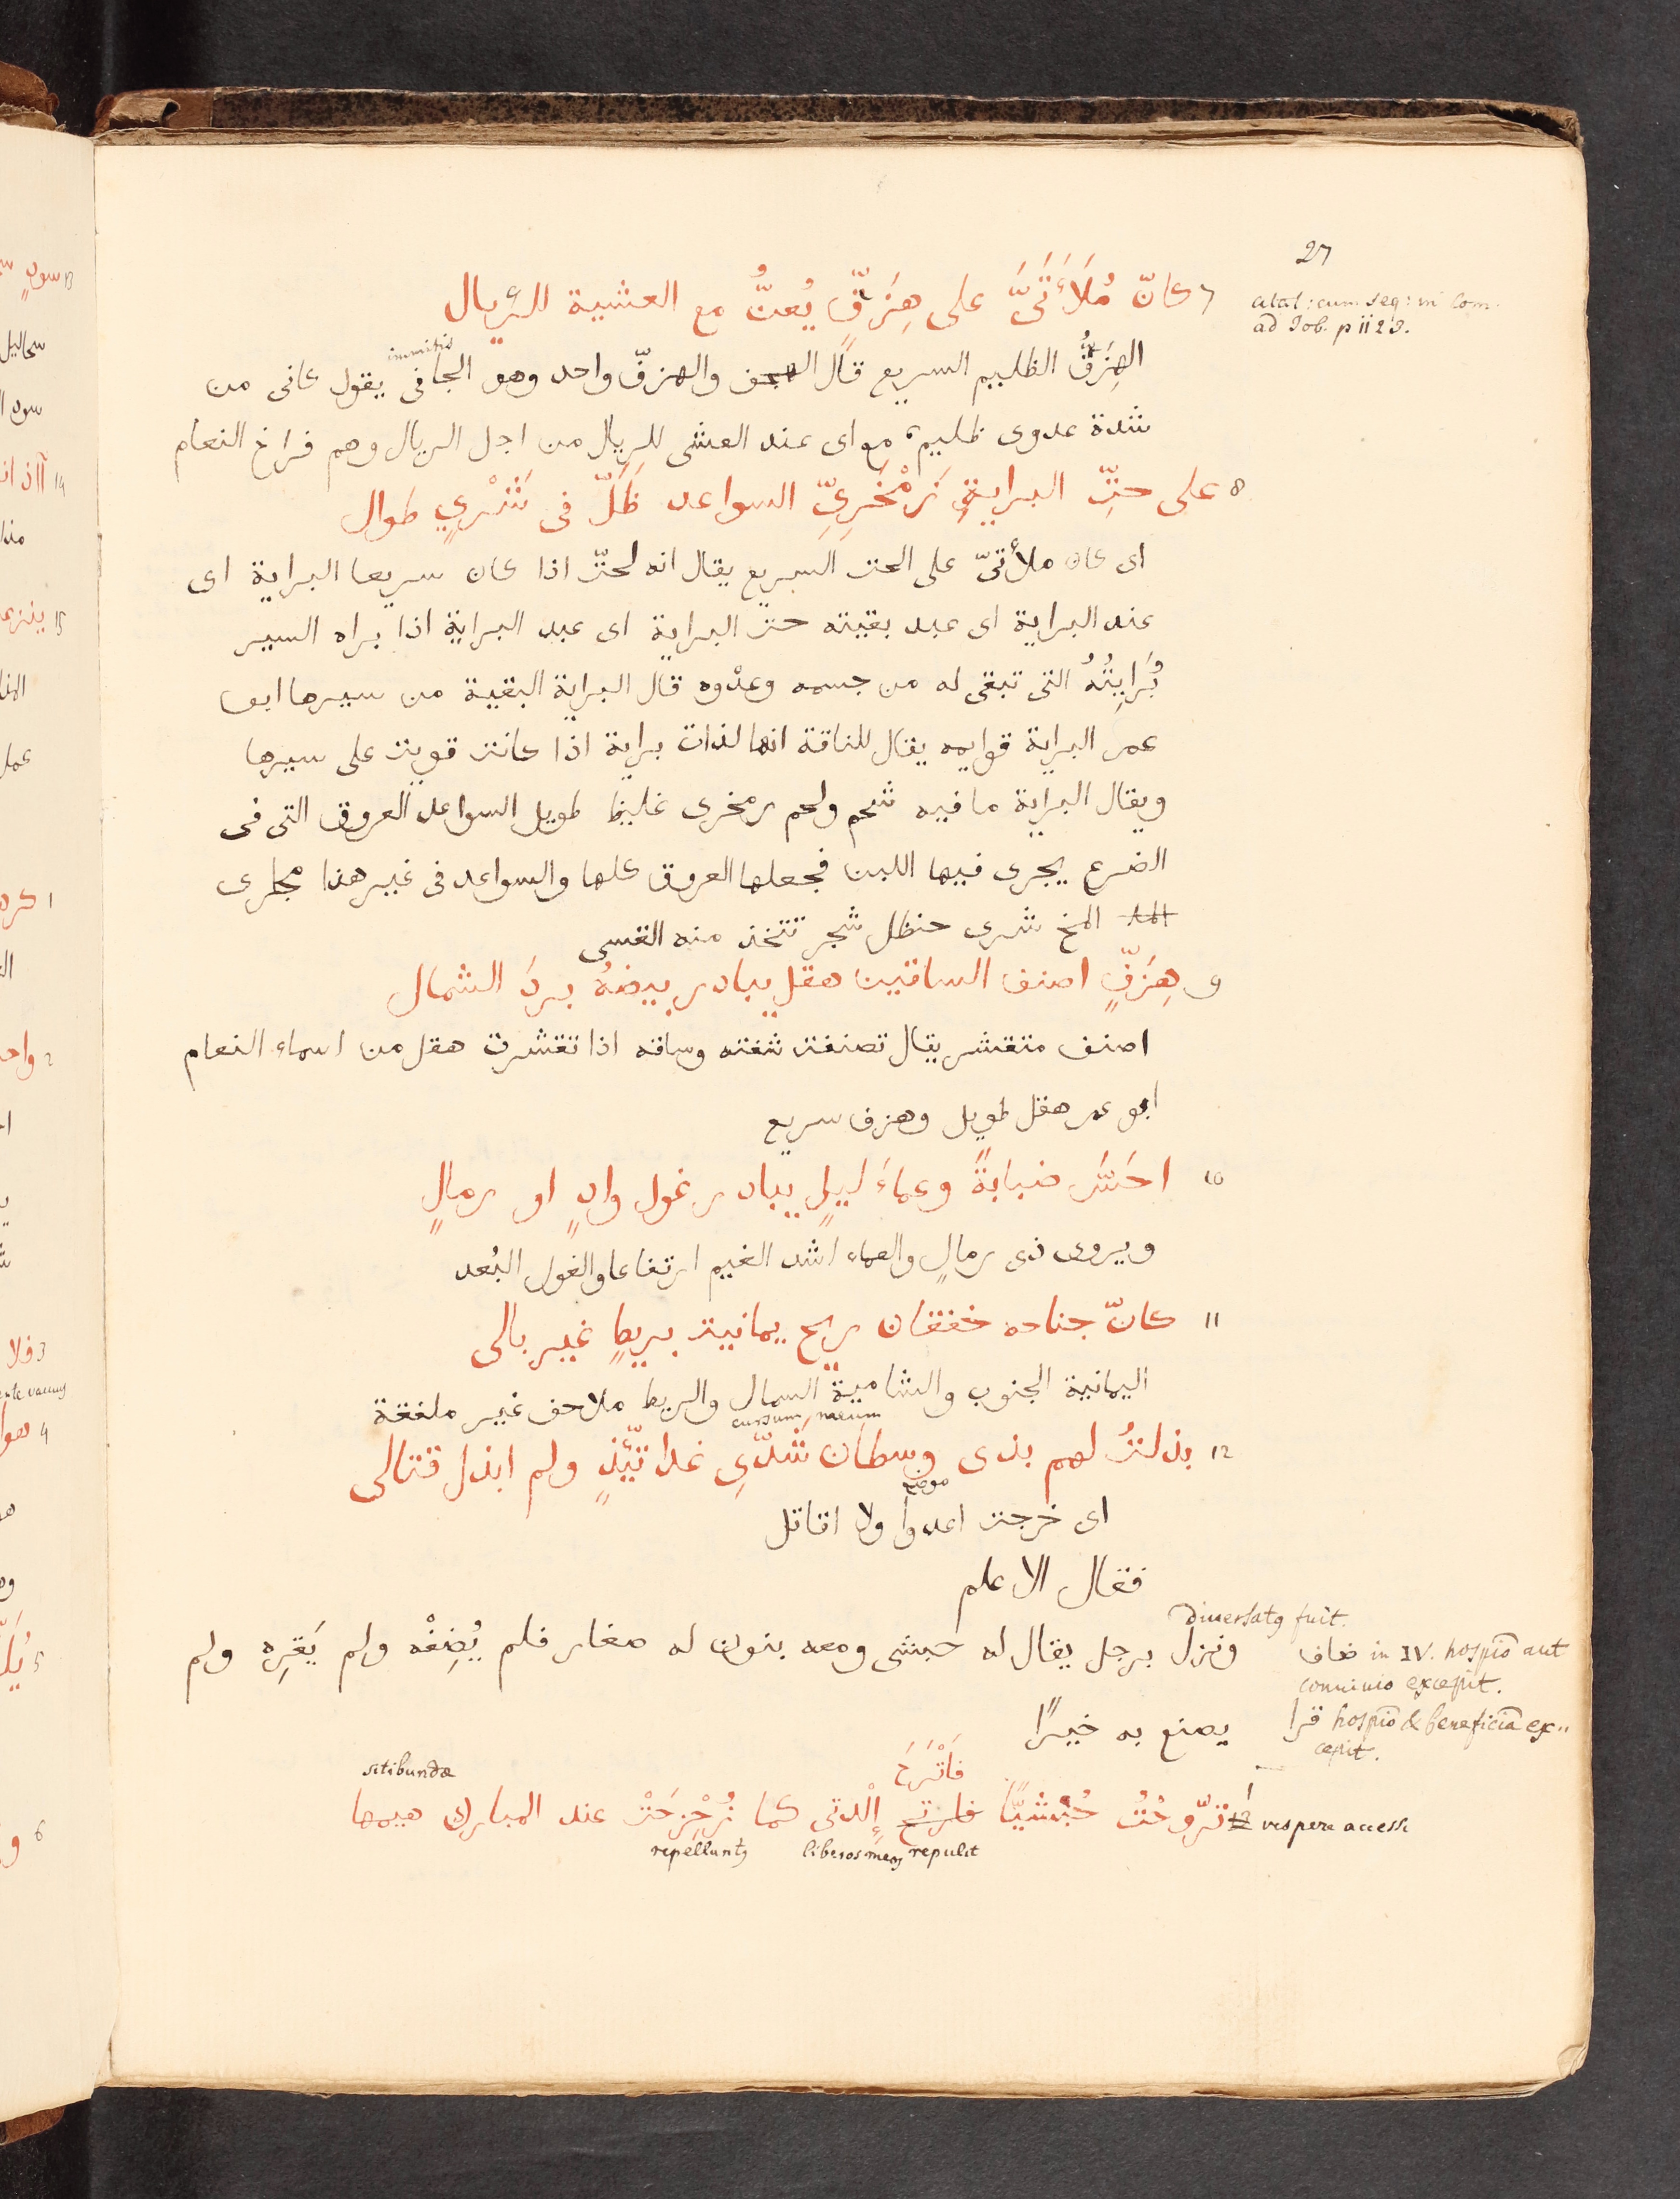 27
citat: cum seq: in Com.
ad Job. p 1123.
7 كانّ مُلَأَتَىَّ على هِزَفٍّ يُعنُّ مع العشية للرئال
immitis
الهِزَفُّ الظليم السريع قال الهجف والهزفّ واحد وهو الجافى يقول كانى من
شدة عدوى ظليم مع اى عند العشى للريال من اجل الريال وهم فراخ النعام
8 على حتِّ البرايةِ زَمْخَرِىِّ السواعد ظَلّ فى شَرْىٍ طوال
اى كان ملأتىّ على الحت السريع يقال انه لحتّ اذا كان سريعا البراية اى
عند البراية اى عبد بقيته حت البراية اى عبد البراية اذا براه السير
بُرَايتُهُ التى تبقى له من جسمه وعدْوه قال البراية البقية من سيرها ابو
عمر البراية قوايمه يقال للناقة انها لذات براية اذا كانت قويت على سيرها
ويقال البراية ما فيه شحم ولحم زمخرى غليظ طويل السواعد العروق التى فى
الضرع يجرى فيها اللبن فجعلها العروق كلها والسواعد فى غير هذا مجارى
المخ شرى حنظل شجر تتخذ منه القسى
9 هِزَفٍّ اصنف الساقين هقل يبادر بيضهُ بردَ الشمال
اصنف متقشر يقال تصنفت شفته وساقه اذا تقشرت هقل من اسماء النعام
ابو عمر هقل طويل وهزف سريع
10 احَسَّ ضبابةً وعماءَ ليلٍ يبادر غول وادٍ او رمالٍ
ويروى ذى رمالٍ والعماء اشد الغيم ارتفاعا والغول البُعد
11 كانّ جناحه خفقان ريح يمانية بريطٍ غير بالى
اليمانية الجنوب والشامية الشمال والريط ملاحف غير ملفقة
cursum meum
12 بذلتُ لهم بذى وسطان شَدّىِ غداتئذٍ ولم ابذل قتالى
موضع
اى خرجت اعدوا ولا اقاتل
فقال الاعلم
diuersatꝯ fuit.
ونزل برجل يقال له حبشى ومعه بنون له صغار فلم يُضِفْه ولم يَقرِه ولم
ضاف in IV. hospio aut
conuiuio excepit.
يصنع به خيرًا
قرا hospio & beneficia ex-
cepit.
فَاَتْرَحَ
sitibundæ
1 تروّحْتُ حُبْشيًّا فازح إلْدتى كما زُحْزِحَتْ عند المبارك هيمها
vespere accessi
repelluntꝯ liberos meos repulit